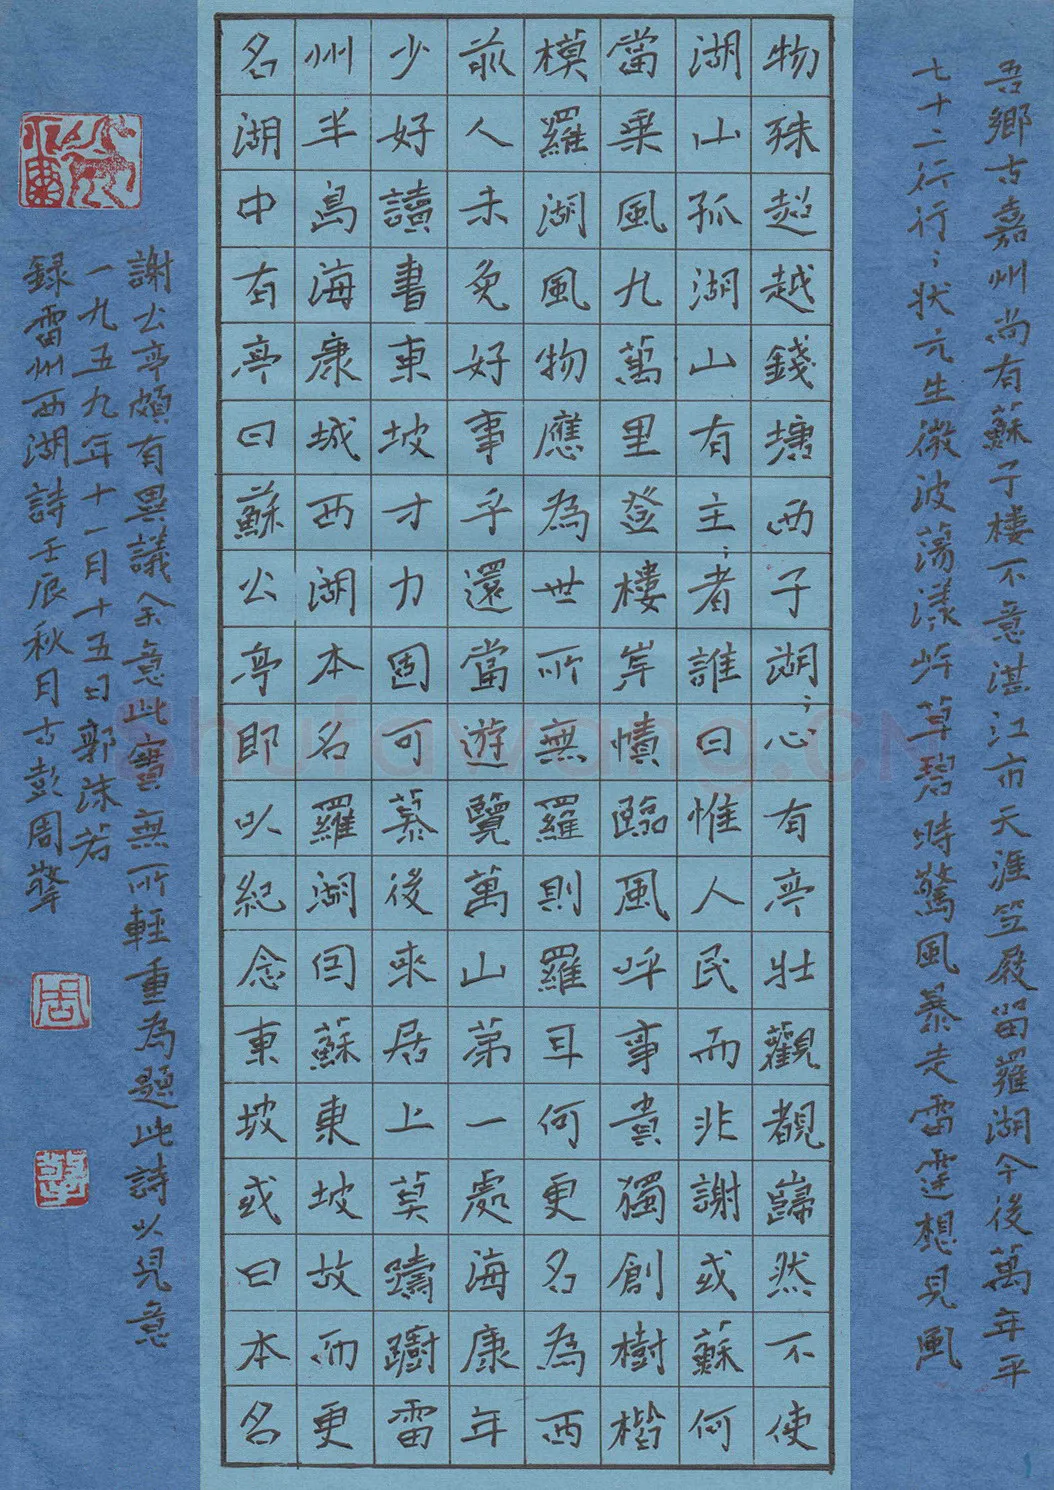 吾鄉古嘉州尚有蘇子樓不意湛江市天涯笠屐留羅湖今後萬年平
七十二行行;狀元生微波蕩漾岸草碧時驚風暴走雷霆想見風
物殊超越錢塘西子湖;心有亭壯觀覩巋然不使
湖山孤湖山有主;者誰曰惟人民而非謝或蘇何
當乘風九萬里登樓岸幘臨風呼事貴獨創樹楷
模羅湖風物應為世所無羅則羅耳何更名為西
前人未免好事乎還當遊覽萬山第一處海康年
少好讀書東坡才力固可慕後來居上莫躊躕雷
州半島海康城西湖本名羅湖因蘇東坡故而更
名湖中有亭曰蘇公亭即以紀念東坡或曰本名
謝公亭頗有異議余意此實無所輕重為題此詩以見意
一九五九年十一月十五日郭沫若
録雷州西湖詩壬辰秋月古彭周擎
周
擎
shufawang.CN